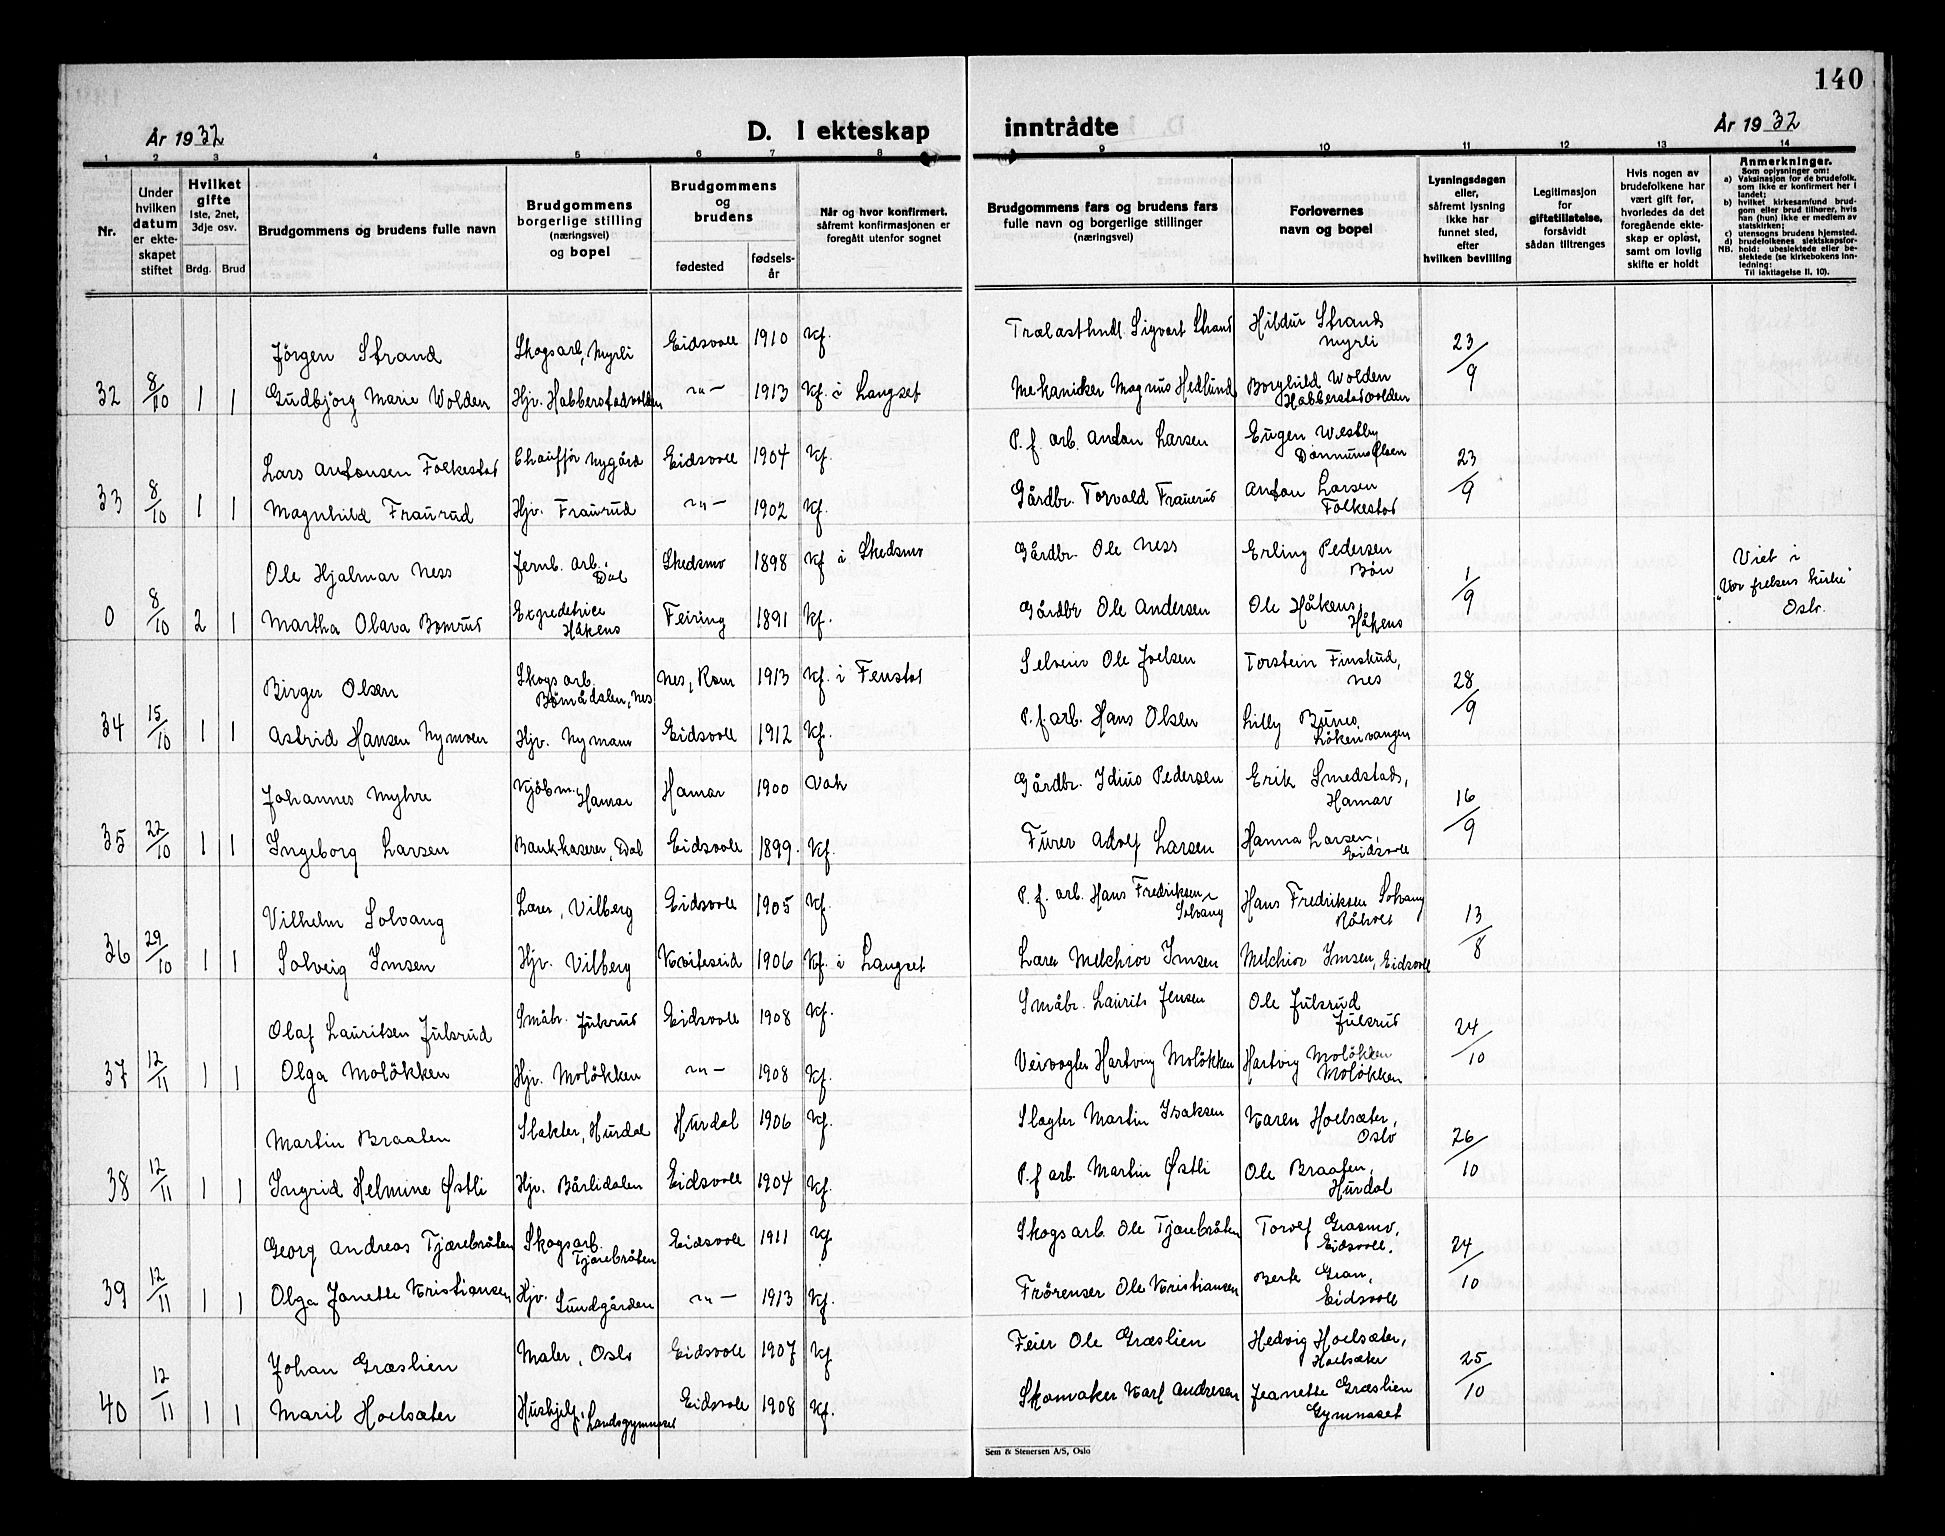 140
År 1932
D. I ekteskap inntrådte
År 1932
1 2 3 4 5 6 7 8 9 10 11 12 13 14
Nr.
Under
hvilken
datum
er ekte-
skapet
stiftet
Hvilket
gifte
1ste, 2net,
3dje osv.
Brdg. Brud
Brudgommens og brudens fulle navn
Brudgommens
borgerlige stilling
(næringsvei)
og bopel
Brudgommens
og
brudens
fødested
fødsels-
år
Når og hvor konfirmert,
såfremt konfirmasjonen er
foregått utenfor sognet
Brudgommens fars og brudens fars
fulle navn og borgerlige stillinger
(næringsvei)
Forlovernes
navn og bopel
Lysningsdagen
eller,
såfremt lysning
ikke har
funnet sted,
efter
hvilken bevilling
Legitimasjon
for
giftetillatelse,
forsåvidt
sådan tiltrenges
Hvis nogen av
brudefolkene har
vært gift før,
hvorledes da det
foregående ekte-
skap er opløst,
samt om lovlig
skifte er holdt
Anmerkninger.
Som oplysninger om:
a) Vaksinasjon for de brudefolk,
som ikke er konfirmert her i
landet;
b) hvilket kirkesamfund brud-
gom eller brud tilhører, hvis
han (hun) ikke er medlem av
statskirken;
c) utensogns brudens hjemsted.
d) brudefolkenes slektskapsfor-
NB. hold: ubeslektede eller be-
slektede (se kirkebokens inn-
ledning:
Til iakttagelse II, 10).
Jörgen Strand Skogsarb, Myrli Eidsvoll 1910 Kf. Trælasthndl. Sigvart Strand Hildur Strand
Myrli
23/9
32 8/10 1 1 Gudbjörg Marie Wolden Hjv. Habberstadvolden -"- 1913 Kf. i Langset Mekaniker Magnus Hedlund Borghild Wolden
Habberstadvolden
Lars Antonsen Folkestad Chauffør Nygård Eidsvoll 1904 Kf. P. f. arb. Anton Larsen Eugen Westby
23/9
33 8/10 1 1 Magnhild Fraurud Hjv. Fraurud -"- 1902 Kf. Gårdbr. Torvald Fraurud Anton Larsen
Folkestad
Ole Hjalmar Ness Jernb. arb.
Dal
Skedsmo 1898 Kf i Skedsmo Gårdbr. Ole Ness Erling Pedersen
Bön
1/9
Viet i
"Vor frelsers kirke"
Oslo.
0 8/10 2 1 Martha Olava Bomrud Expeditrice
Håkens
Feiring 1891 Kf. Gårdbr Ole Andersen Ole Håkens,
Håkens
Birger Olsen Skogsarb.
Börnådalen, Nes
Nes, Rom 1913 Kf. i Fenstad Selveier Ole Joelsen Torstein Finskud,
Nes
28/9
34 15/10 1 1 Astrid Hansen Nymoen Hjv. Nymoen Eidsvoll 1912 Kf. P. f. arb. Hans Olsen Lilly Bunes
Lökenvangen
Johannes Myhre Kjöbm. Hamar Hamar 1900 Vak Gårdbr. Idius Pedersen Erik Smedstad,
Hamar
16/9
35 22/10 1 1 Ingeborg Larsen Bankkaserer, Dal Eidsvoll 1899 Kf. Furer Adolf Larsen Hanna Larsen,
Eidsvoll
Vilhelm Solvang Lærer, Vilberg Eidsvoll 1905 Kf. P. f. arb. Hans Fredriksen
Solvang
Hans Fredriksen Solvang
Råholt
13/8
36 29/10 1 1 Solveig Imsen Hjv. Vilberg Kviteseid 1906 Kf. i Langset Lærer Melchior Imsen Melchior Imsen, Eidsvoll
Olaf Lauritsen Julsrud Småbr. Julsrud Eidsvoll 1908 Kf. Småbr. Laurits Jensen Ole Julsrud
Julsrud
24/10
37 12/11 1 1 Olga Molökken Hjv. Molökken -"- 1908 Kf. Veivogter Hartvig Molökken Hartvig Molökken
Molökken
Martin Braaten Slakter, Hurdal Hurdal 1906 Kf. Slagter Martin Isaksen Karen Hoelsæter,
Oslo
26/10
38 12/11 1 1 Ingrid Helmine Østli Hjv. Bårlidalen Eidsvoll 1904 Kf. P. f arb. Martin Østli Ole Braaten,
Hurdal
Georg Andreas Tjærebråten Skogsarb.
Tjærebråten
Eidsvoll 1911 Kf Skogsarb. Ole Tjærebråten Torolf Grasmo,
Eidsvoll.
24/10
39 12/11 1 1 Olga Janette Kristiansen Hjv. Sundgården -"- 1913 Kf. Frörenser Ole Kristiansen Berte Gran,
Eidsvoll
Johan Græslien Maler, Oslo Eidsvoll 1907 Kf Feier Ole Græslien Hedvig Hoelsæter,
Hoelsæter
25/10
40 12/11 1 1 Marit Hoelsæter Hushjelp, Landsgymnaset Eidsvoll 1908 Kf. Skomaker Karl Andresen Jeanette Græslien
Gymnaset
Sem & Stenersen A/S, Oslo